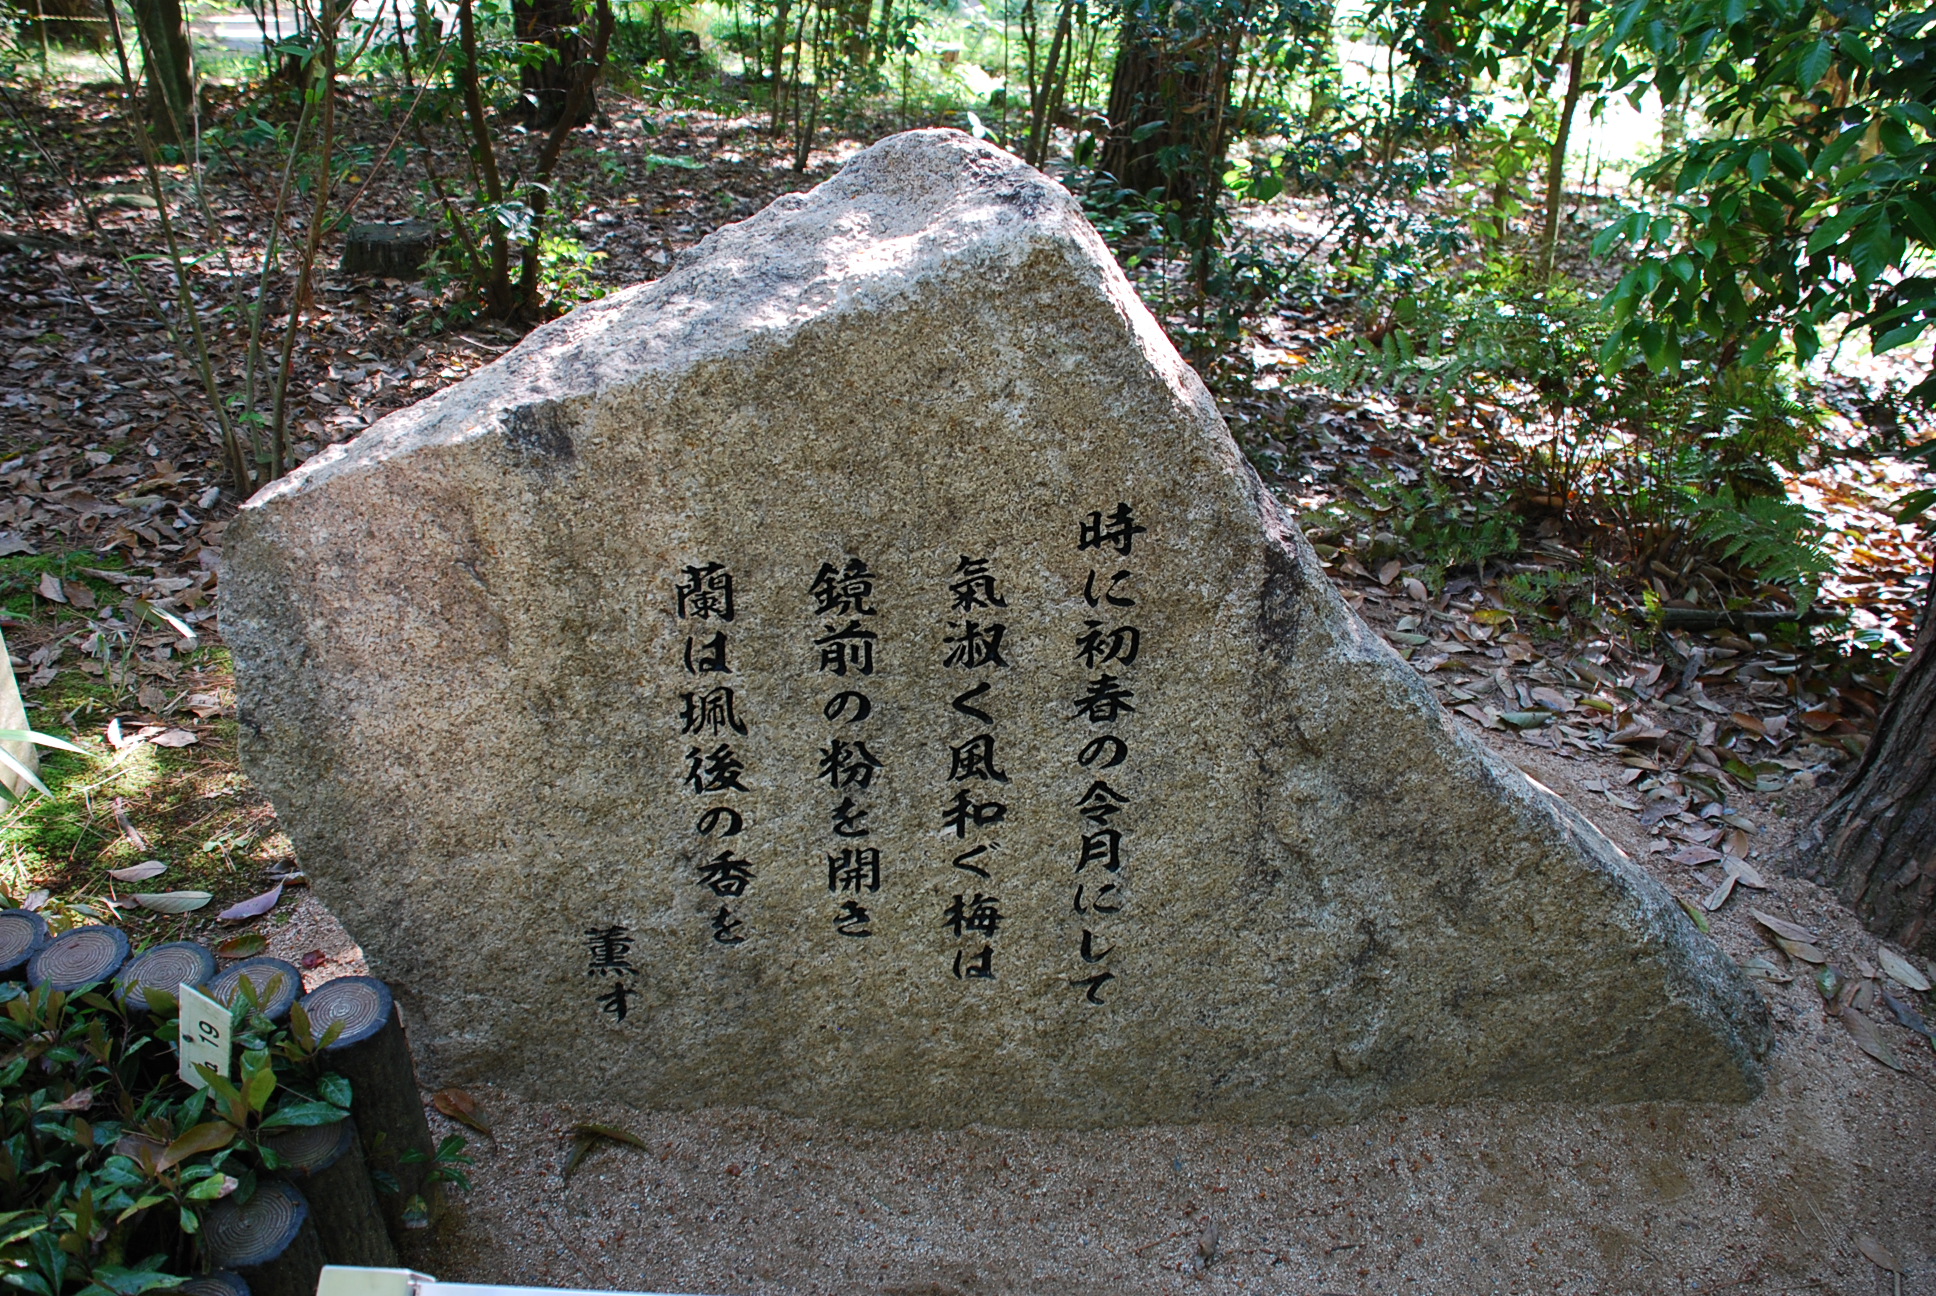 時に初春の令月にして
氣淑く風和ぐ梅は
鏡前の粉を開き
蘭は珮後の香を
薫す
19